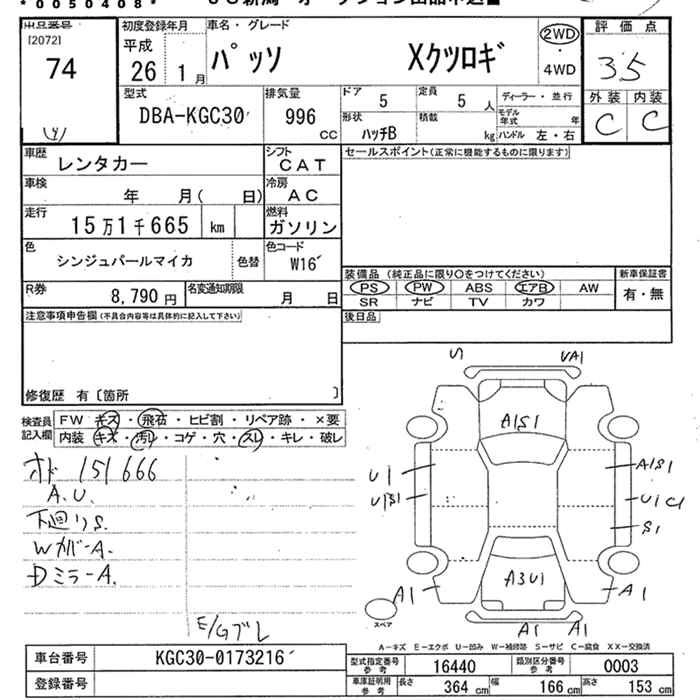 *0050408*
出品番号
[2072]
74
初度登録年月
平成
26 1月
車名・グレード
パッソ Xクツロギ
2WD
・
4WD
評価点
35
外装 内装
C C
型式
DBA-KGC30
排気量
996 cc
ドア 5
定員 5人
形状 ハッチB
積載 kg
ディーラー・並行
モデル年式 年
ハンドル 左・右
車歴 レンタカー
シフト CAT
車検 年 月( 日)
冷房 AC
走行 15万1千665 km
燃料 ガソリン
色 シンジュパールマイカ 色替
色コード W16
R券 8,790円
名変通知期限 月 日
セールスポイント(正常に機能するものに限ります)
装備品(純正品に限り○をつけてください)
PS PW ABS エアB AW
SR ナビ TV カワ
新車保証書
有・無
後日品
注意事項申告欄(不具合内容等は具体的に記入して下さい)
修復歴 有〔箇所 〕
検査員記入欄
FW キズ・飛石・ヒビ割・リペア跡・×要
内装 キズ・汚レ・コゲ・穴・スレ・キレ・破レ
オド 151666
A.U.
下廻りS.
WカバーA.
DミラーA.
E/Gブレ
U VA1
A1S1
U1 A1S1
U1S1 U1 C1
S1
A3U1
A1 A1
スペア
A1 A1
A-キズ E-エクボ U-凹み W-補修跡 S-サビ C-腐食 XX-交換済
車台番号 KGC30-0173216
登録番号
型式指定番号 参考 16440
類別区分番号 参考 0003
車庫証明用 参考 長さ 364cm 幅 166cm 高さ 153cm